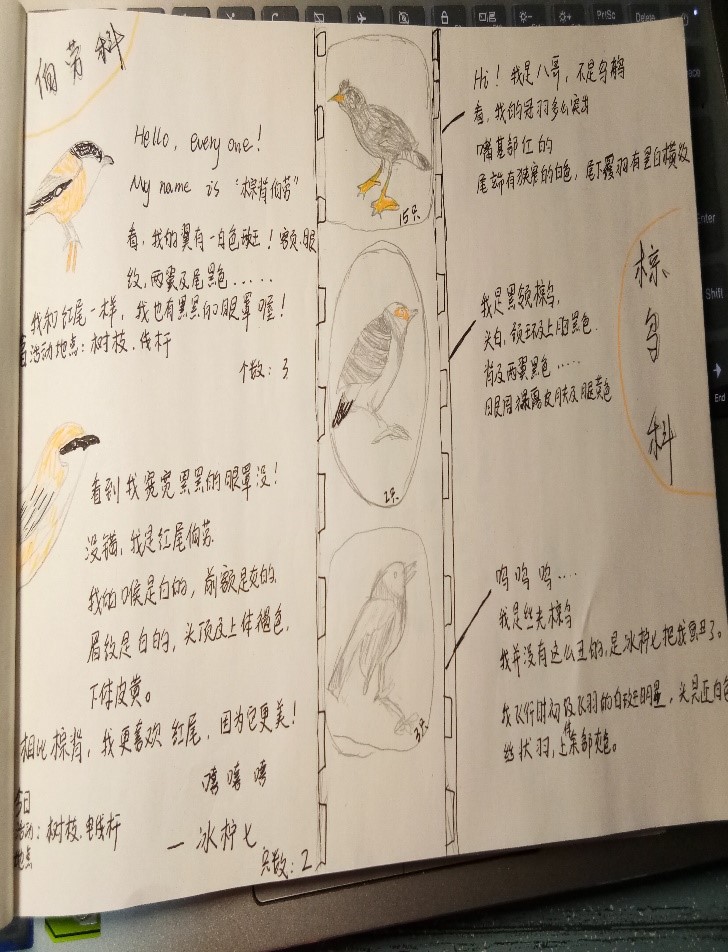 伯劳科
Hello, everyone!
My name is "棕背伯劳"
看,我的翼有一白色斑!额、眼
纹,两翼及尾黑色......
我和红尾一样,我也有黑黑的眼罩喔!
活动地点:树枝、线杆
个数:3
看到我宽宽黑黑的眼罩没!
没错,我是红尾伯劳.
我的喉是白的,前额是灰的.
眉纹是白的,头顶及上体褐色.
下体皮黄。
相比棕背,我更喜欢红尾,因为它更美!
嘻嘻嘻
—冰柠七
今日
活动:树枝、电线杆
地点
只数:2
15只
2只
3只
Hi!我是八哥,不是乌鸫
看,我的冠羽多么突出
嘴基部红的
尾端有狭窄的白色,尾下覆羽有黑白横纹
我是黑领椋鸟.
头白,领环及上胸黑色.
背及两翼黑色......
眼周裸露皮肤及腿黄色
椋鸟科
呜呜呜....
我是丝光椋鸟
我并没有这么丑的,是冰柠七把我画丑了。
我飞行时初级飞羽的白斑明显,头具近白色
丝状羽,上体余部灰色。
PrtSc
Delete
Enter
Shift
End